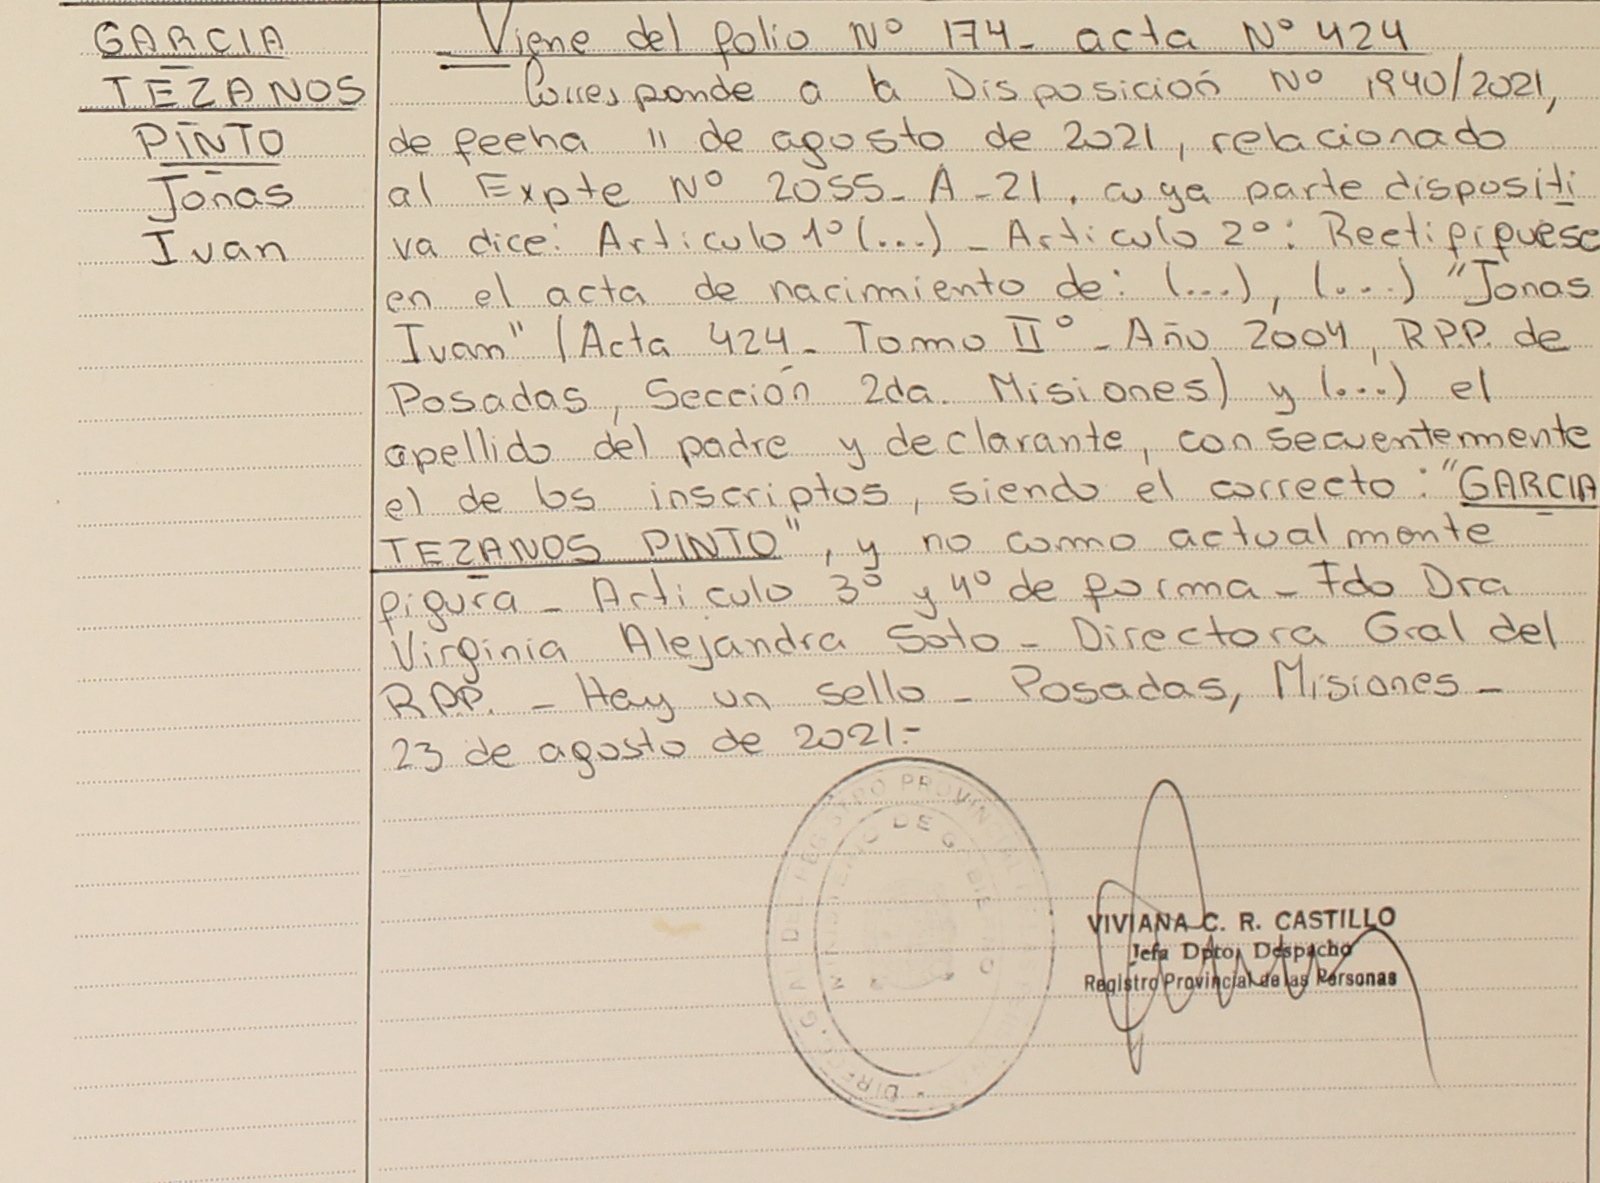 GARCIA
TEZANOS
PINTO
Jonas
Ivan
_ Viene del folio Nº 174_ acta Nº 424
Corresponde a la Disposición Nº 1940/2021,
de fecha 11 de agosto de 2021, relacionado
al Expte Nº 2055_A_21, cuya parte dispositi
va dice: Articulo 1º(...)_ Articulo 2º: Rectifiquese
en el acta de nacimiento de: (...), (...) "Jonas
Ivan" (Acta 424_ Tomo IIº _ Año 2004, R.P.P. de
Posadas, Sección 2da. Misiones) y (...) el
apellido del padre y declarante, consecuentemente
el de los inscriptos, siendo el correcto: "GARCIA
TEZANOS PINTO", y no como actualmente
figura _ Articulo 3º y 4º de forma _ Fdo Dra
Virginia Alejandra Soto _ Directora Gral del
R.P.P. _ Hay un sello _ Posadas, Misiones _
23 de agosto de 2021.-
DEL REGISTRO PROVINCIAL
MINISTERIO DE GOBIERNO
VIVIANA C. R. CASTILLO
Jefa Dpto. Despacho
Registro Provincial de las Personas